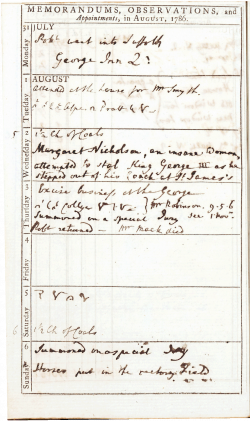 MEMORANDUMS, OBSERVATIONS, and
Appointments, in AUGUST, 1786.
31 JULY
Monday
Robt went into Suffolk
George Inn
1 AUGUST
Tuesday
attended at the house for Mr Smyth
2
Wednesday
1½ Ch of Coals
Margaret Nicholson, an insane Woman
attempted to stab King George III as he
stepped out of his Coach at St James's
3
Thursday
Excise business at the George
Mr Robinson. 9.5.6
Summoned on a special Jury see 1 Nov.
Robt returned — Mr Mack died
4
Friday
5
Saturday
1½ Ch of Coals
6
Sunday
Summoned on a special Jury
Horses put in the rectory Field